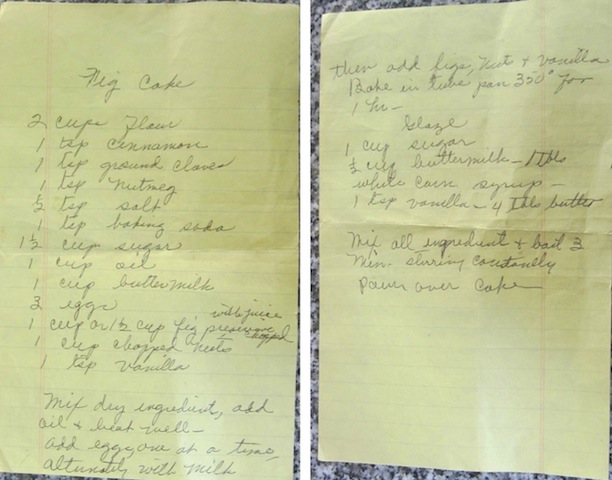 Fig Cake
2 cups Flour
1 tsp cinnamon
1 tsp ground cloves
1 tsp Nutmeg
½ tsp salt
1 tsp baking soda
1½ cup sugar
1 cup oil
1 cup buttermilk
3 eggs
with juice
1 cup or 1½ cup fig preserve chopped
1 cup chopped nuts
1 tsp vanilla
Mix dry ingredient, add
oil & beat well -
add eggs one at a time,
alturnately with milk
then add figs, Nuts & vanilla
Bake in tube pan 350° for
1 hr -
Glaze
1 cup sugar
½ cup buttermilk - 1 tbls
white corn syrup -
1 tsp vanilla - 4 tbls butter
Mix all ingredient & boil 3
Min. sturing constantly
pour over cake